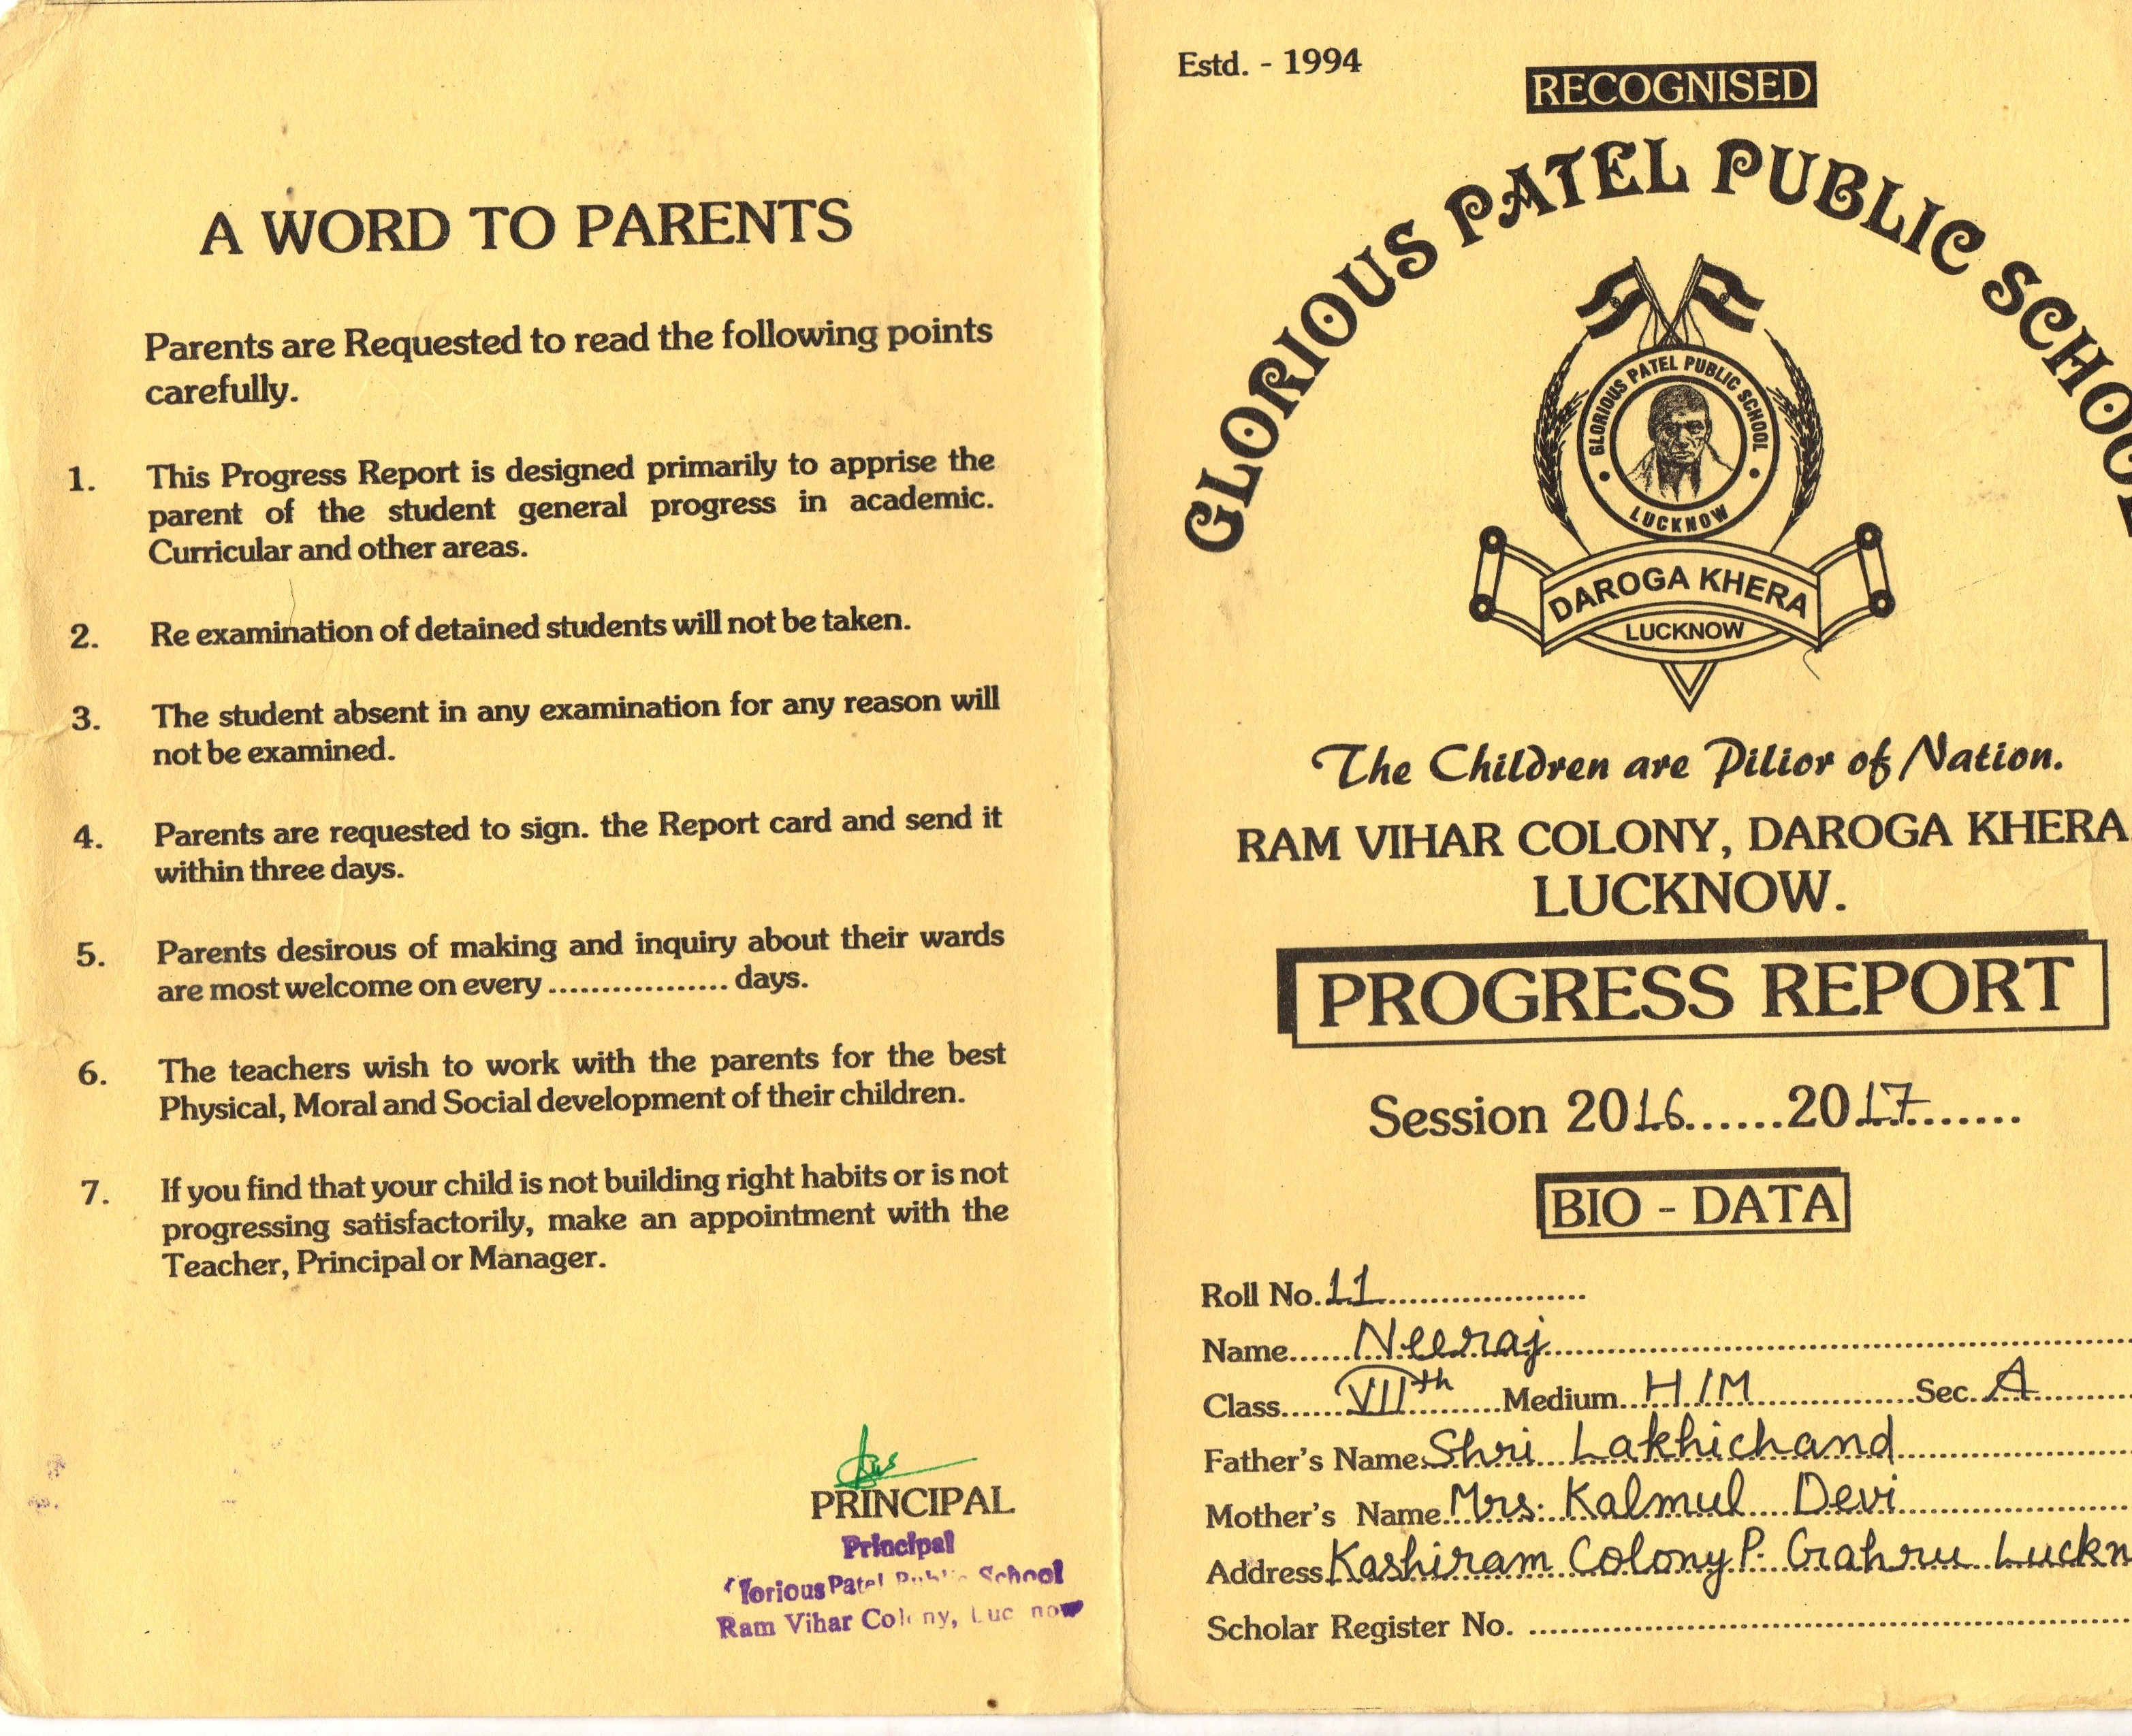 A WORD TO PARENTS
Parents are Requested to read the following points
carefully.
1. This Progress Report is designed primarily to apprise the
parent of the student general progress in academic.
Curricular and other areas.
2. Re examination of detained students will not be taken.
3. The student absent in any examination for any reason will
not be examined.
4. Parents are requested to sign. the Report card and send it
within three days.
5. Parents desirous of making and inquiry about their wards
are most welcome on every ................. days.
6. The teachers wish to work with the parents for the best
Physical, Moral and Social development of their children.
7. If you find that your child is not building right habits or is not
progressing satisfactorily, make an appointment with the
Teacher, Principal or Manager.
PRINCIPAL
Principal
lorious Patel Public School
Ram Vihar Colony, Lucknow
Estd. - 1994
RECOGNISED
GLORIOUS PATEL PUBLIC SCHOOL
GLORIOUS PATEL PUBLIC SCHOOL
LUCKNOW
DAROGA KHERA
LUCKNOW
The Children are Pilior of Nation.
RAM VIHAR COLONY, DAROGA KHERA
LUCKNOW.
PROGRESS REPORT
Session 2016......2017.......
BIO - DATA
Roll No. 11
Name Neeraj
Class VIIth Medium H/M Sec. A
Father's Name Shri Lakhichand
Mother's Name Mrs. Kalmul Devi
Address Kashiram Colony P. Grahru Luckn
Scholar Register No.